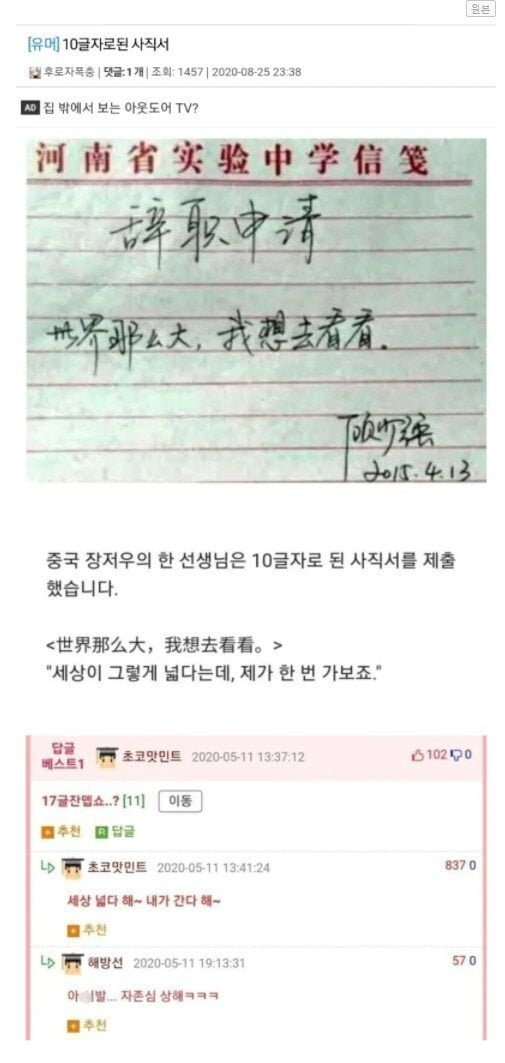 원본
[유머] 10글자로된 사직서
후로자폭충 | 댓글: 1 개 | 조회: 1457 | 2020-08-25 23:38
AD 집 밖에서 보는 아웃도어 TV?
河南省实验中学信笺
辞职申请
世界那么大，我想去看看.
顾少强
2015.4.13
중국 장저우의 한 선생님은 10글자로 된 사직서를 제출
했습니다.
<世界那么大，我想去看看。>
"세상이 그렇게 넓다는데, 제가 한 번 가보죠."
답글
베스트1 초코맛민트 2020-05-11 13:37:12 102 0
17글잔뎁쇼..? [11] 이동
추천 R 답글
초코맛민트 2020-05-11 13:41:24 837 0
세상 넓다 해~ 내가 간다 해~
추천
해방선 2020-05-11 19:13:31 57 0
아 발... 자존심 상해ㅋㅋㅋ
추천